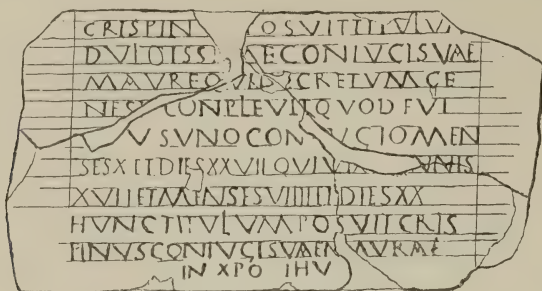 CRISPIN OSVIT TITVLVM
DVLCISS MECONIVGISVAE
MAVREQVEDECRETVMGE
CONPLEVITQVODFVI
VSVNOCON MEN
SESXIIDIESXXVII ANNIS
XVIIETMENSESVIIII DIESXX
HVNCTITVLVMPOSVITCRIS
PINVSCONIVGISVAEN MVRAE
IN XPO IHV